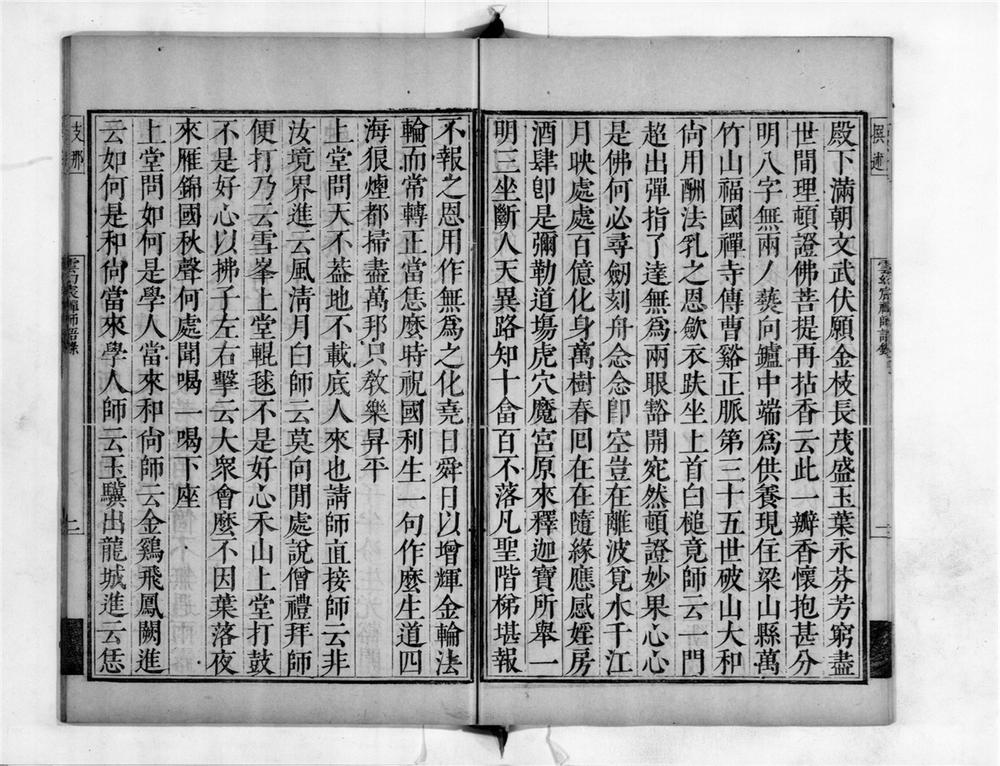 殿下滿朝文武伏願金枝長茂盛玉葉永芬芳窮盡
世間理頓證佛菩提再拈香云此一瓣香懷抱甚分
明八字無兩人爇向鑪中端爲供養現住梁山縣萬
竹山福國禪寺傳曹谿正脈第三十五世破山大和
尙用酬法乳之恩斂衣趺坐上首白槌竟師云一門
超出彈指了達無爲兩眼豁開宛然頓證妙果心心
是佛何必尋劒刻舟念念卽空豈在離波覓水千江
月映處處百億化身萬樹春回在在隨緣應感婬房
酒肆卽是彌勒道塲虎穴魔宮原來釋迦寶所舉一
明三坐斷人天異路知十畣百不落凡聖階梯堪報
不報之恩用作無爲之化堯日舜日以增輝金輪法
輪而常轉正當恁麼時祝國利生一句作麼生道四
海狼煙都掃盡萬邦只敎樂昇平
上堂問天不葢地不載底人來也請師直接師云非
汝境界進云風淸月白師云莫向閒處說僧禮拜師
便打乃云雪峯上堂輥毬不是好心禾山上堂打鼓
不是好心以拂子左右擊云大衆會麼不因葉落夜
來雁錦國秋聲何處聞喝一喝下座
上堂問如何是學人當來和尙師云金鷄飛鳳闕進
云如何是和尙當來學人師云玉驥出龍城進云恁
支那
撰述
二